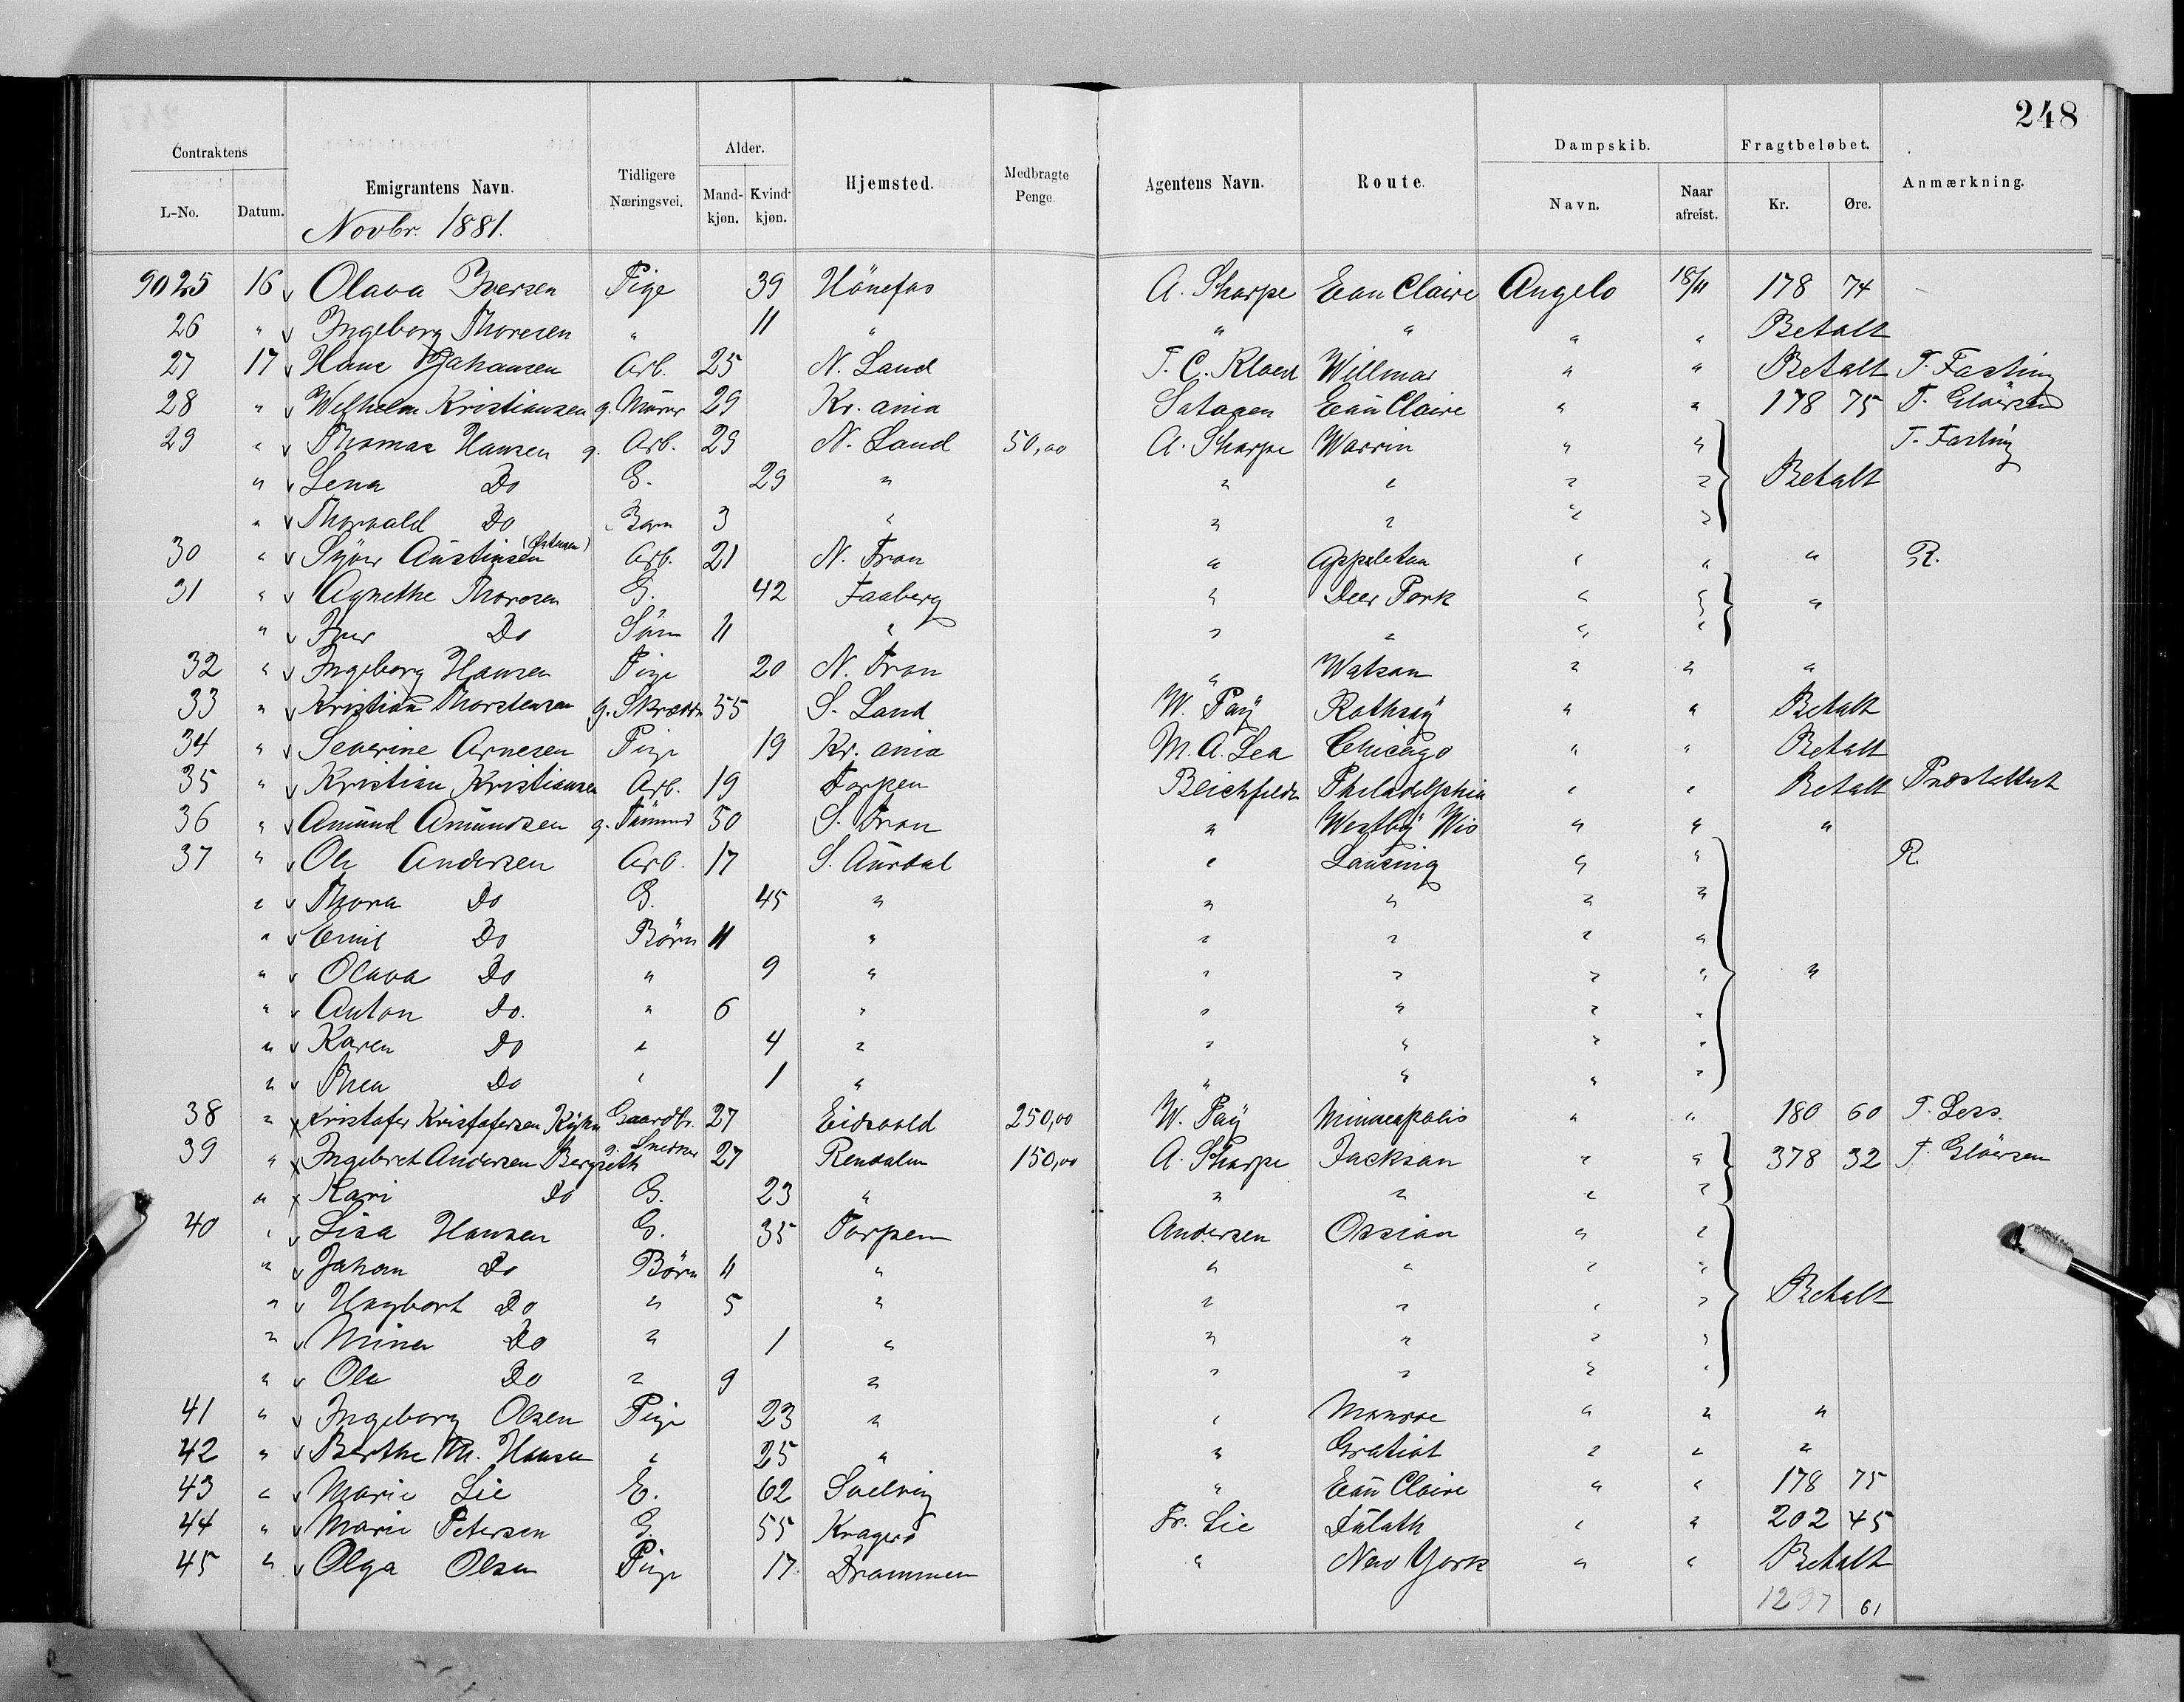 248
Contraktens Emigrantens Navn. Tidligere Næringsvei. Alder. Hjemsted. Medbragte Penge. Agentens Navn. Route. Dampskib. Fragtbeløbet. Anmærkning.
L-No. Datum. Mand-kjøn. Kvind-kjøn. Navn. Naar afreist. Kr. Øre.
Novbr. 1881.
9025 16 v Olava Iversen Pige 39 Hönefos A. Sharpe Eau Claire Angelo 18/11 178 74
26 " v Ingeborg Thoresen " 11 " " " " " Betalt
27 17 v Hans Johansen Arb. 25 N. Land T. C. Willmar " " Betalt T. Fasting
28 " v Wilhelm Kristiansen g. Murer 29 Kr.ania Eau Claire " " 178 75 T. Gløersen
29 " v Thomas Hansen g. Arb. 29 N. Land 50,00 A. Sharpe Warrin " " T. Fasting
" v Lena Do G. 29 " " " " " Betalt
" v Thorvald Do Barn 3 " " " " "
30 " v Syver Austinsen Arb. 21 N. Fron " Appleton " " " R.
31 " v Agnethe Thoresen G. 42 Faaberg " Deer Park " " "
" v Iver Do Sön 11 " " " " "
32 " v Ingeborg Hansen Pige 20 N. Fron " Watson " " "
33 " v Kristian Thorstensen g. Skrædder 55 S. Land W. Pay Rothsay " " Betalt
34 " v Severine Arnesen Pige 19 Kr.ania M. A. Lea Chicago " " Betalt
35 " v Kristian Kristiansen Arb. 19 Torpen Bleichfeldt Philadelphia " " Betalt
36 " v Amund Amundsen g. 50 S. Fron " Westby Wis " " "
37 " v Ole Andersen Arb. 17 S. Aurdal " Lansing " " R
" v Thora Do G. 45 " " " " "
" v Emil Do Börn 11 " " " " "
" v Olava Do " 9 " " " " " "
" v Anton Do. " 6 " " " " "
" v Karen Do " 4 " " " " "
" v Thea Do " 1 " " " " "
38 " x Kristofer Kristofersen Gaardbr. 27 Eidsvold 250,00 W. Pay Minneapolis " " 180 60 T. Less.
39 " x Ingebret Andersen Bergseth g. Snedker 27 Rendalen 150,00 A. Sharpe Jackson " " 378 32 T. Gløersen
" x Kari Do G. 23 " " " " "
40 " v Lisa Hansen G. 35 Torpen Andersen Ossian " "
" v Johan Do Börn 11 " " " " "
" v Hagbart Do " 5 " " " " " Betalt
" v Mina Do " 1 " " " " "
" v Ole Do " 9 " " " " "
41 " v Ingeborg Olsen Pige 23 " " Monroe " " "
42 " v Berthe M. Hansen " 25 " " Gratiot " " "
43 " v Marie Lie E. 62 Soelvig " Eau Claire " " 178 75
44 " v Marie Petersen G. 55 Kragerö Fr. Lie Duluth " " 202 45
45 " v Olga Olsen Pige 17 Drammen " New York " " Betalt
1297 61